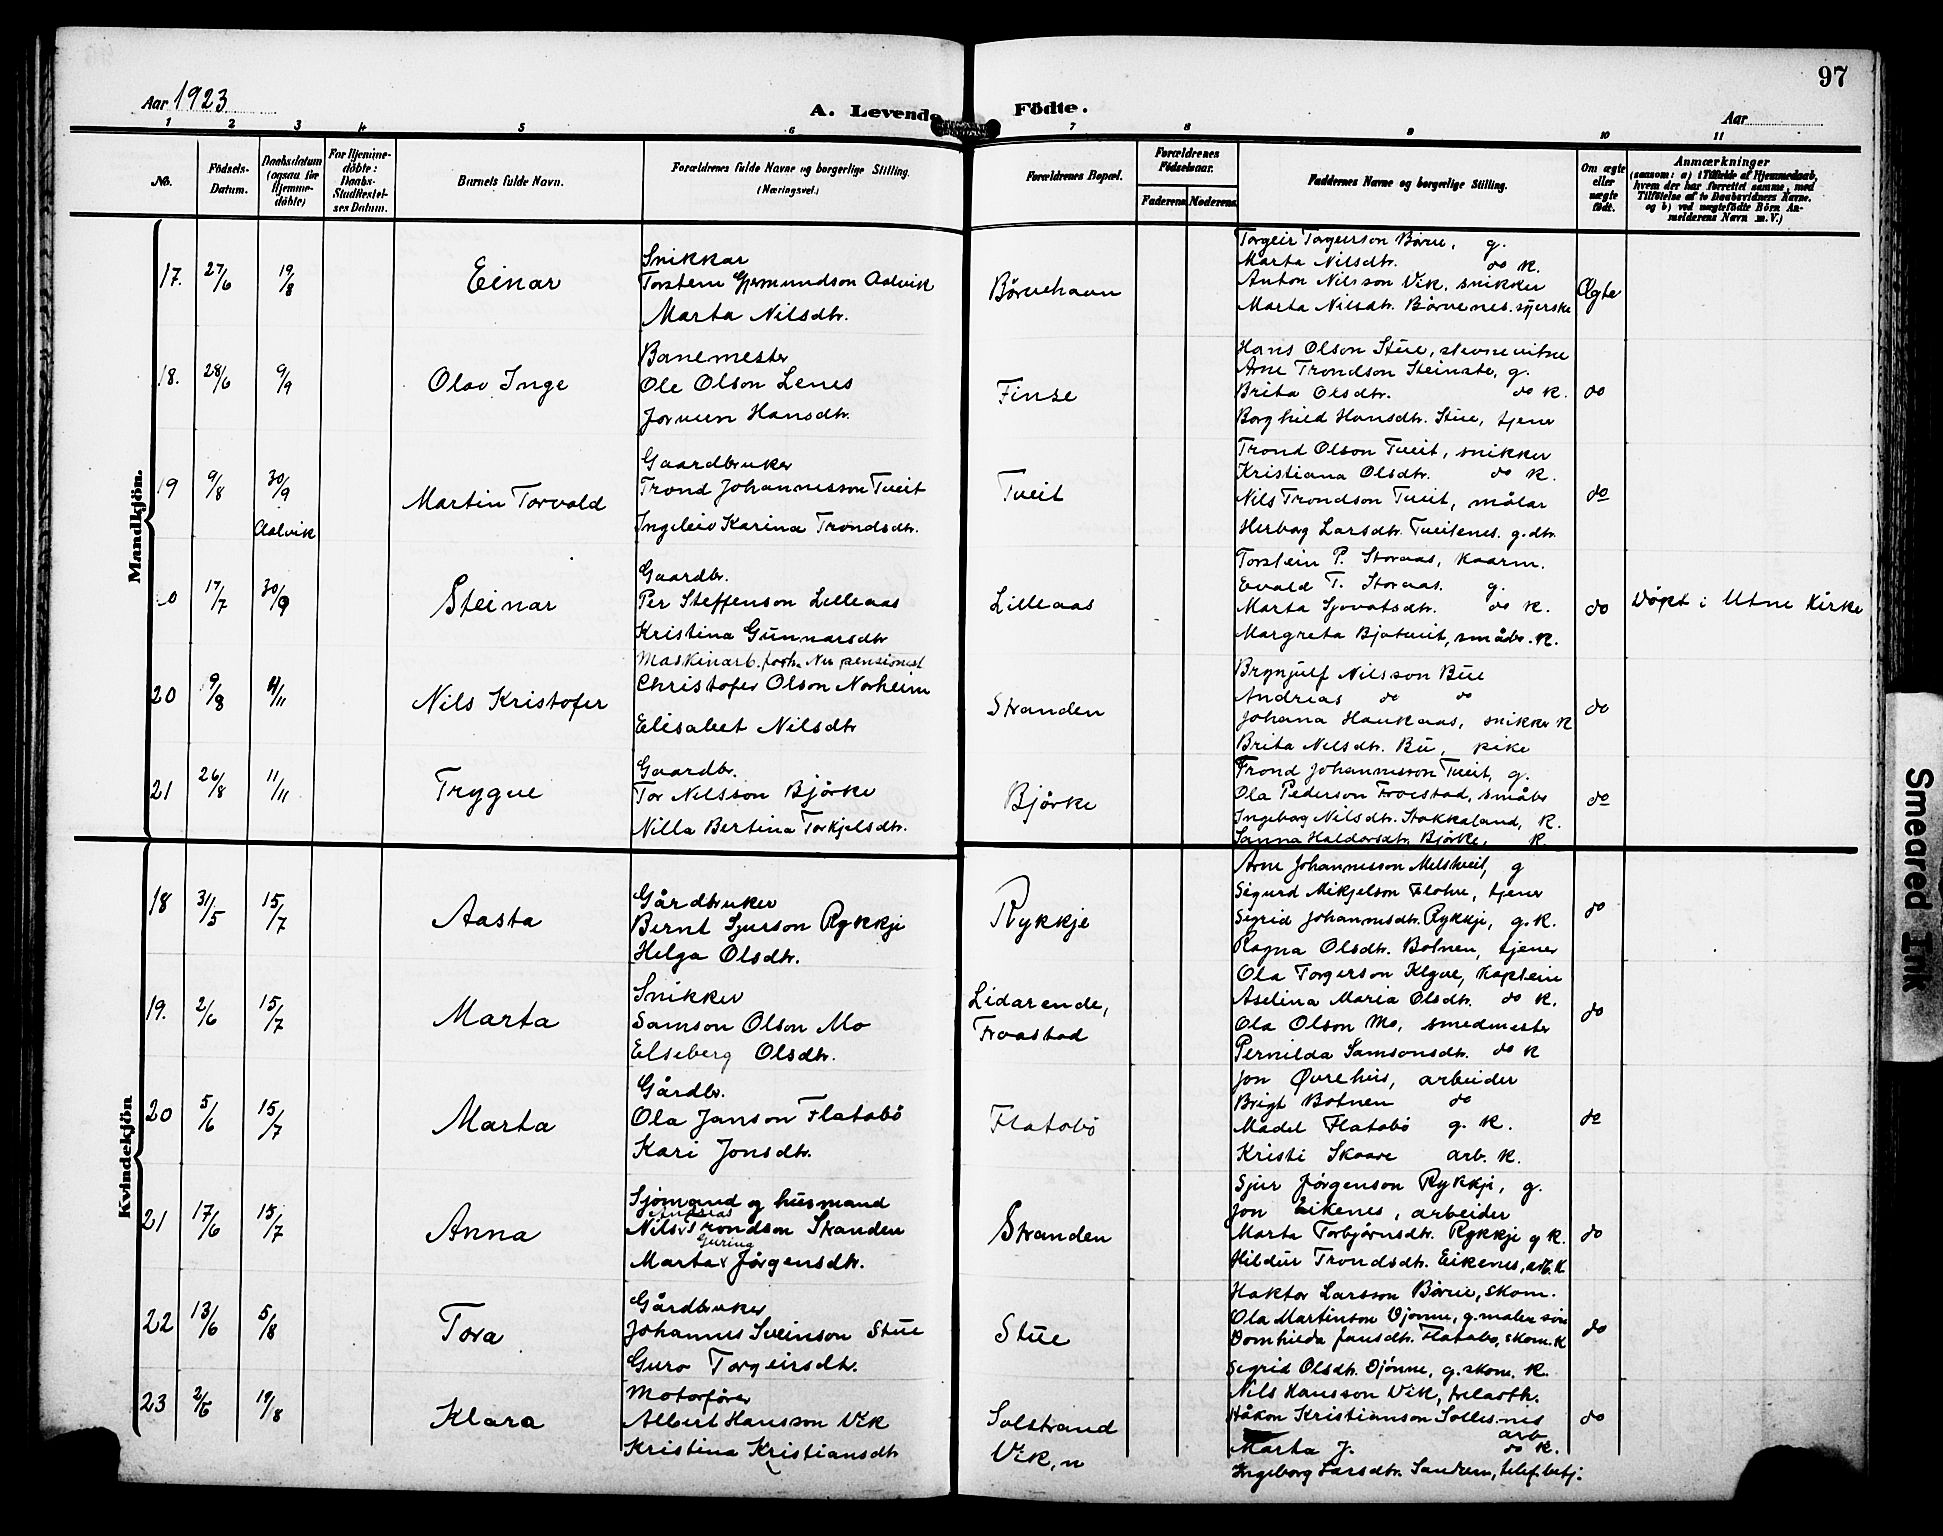 97
Aar 1923
A. Levende Födte.
Aar
1 2 3 4 5 6 7 8 9 10 11
No.
Födsels-
Datum.
Daabsdatum
(ogsaa for
Hjemme-
döbte)
For Hjemme-
döbte:
Daabs-
Stadfæstel-
ses Datum.
Barnets fulde Navn.
Forældrenes fulde Navne og borgerlige Stilling.
(Næringsvei.)
Forældrenes Bopæl.
Forældrenes
Födselsaar.
Faderens Moderens
Faddernes Navne og borgerlige Stilling.
Om ægte
eller
uægte
födt.
Anmærkninger
(saasom: a) i Tilfælde af Hjemmedaab,
hvem der har forrettet samme, med
Tilföielse af to Daabsvidners Navne.
og b) ved uægtefödte Börn An-
melderens Navn m. V.)
Mandkjön.
17. 27/6 19/8
Einar
Snikkar
Torstein Gjermundson Aalvik
Marta Nilsdtr.
Børvehavn
Torgeir Torgeirson Børve, g.
Marta Nilsdtr. do k.
Anton Nilsson Vik, snikker
Marta Nilsdtr. Børvenes. syerske
Ægte
18. 28/6 9/9
Olav Inge
Banemester
Ole Olson Lenes
Jorunn Hansdtr.
Finse
Hans Olson Stue, stevnevitne
Arne Trondson Steinstø, g.
Brita Olsdtr. do k.
Borghild Hansdtr. Stue, tjener
do
19 9/8 30/9
Aalvik
Martin Torvald
Gaardbruker
Trond Johannesson Tveit
Ingeleiv Karina Trondsdtr.
Tveit
Trond Olson Tveit, snikker
Kristiana Olsdtr. do k.
Nils Trondson Tveit, målar
Herborg Larsdtr. Tveitenes. g.dtr.
do
0 17/7 30/9
Steinar
Gaardbr.
Per Steffenson Lilleaas
Kristina Gunnarsdtr
Lilleaas
Torstein P. Storaas, kaarm.
Evald T. Storaas. g.
Marta Sjovatsdtr. do k.
Margreta Bjotveit, småbr. k.
do
Døpt i Utne Kirke
20 9/8 4/11
Nils Kristofer
Maskinarb. forh. Nu pensionist
Christofer Olson Norheim
Elisabet Nilsdtr
Stranden
Brynjulf Nilsson Bue
Andreas do do
Johana Haukaas, snikker k
Brita Nilsdtr. Bu, pike
do
21 26/8 11/11
Trygve
Gaardbr.
Tor Nilsson Bjørke
Nilla Bertina Torkjelsdtr.
Bjørke
Trond Johannesson Tveit, g.
Ola Pederson Froestad, småbr
Ingeborg Nilsdtr. Stokkaland, k.
Sanna Haldorsdtr. Bjørke, k
do
Kvindekjön
18 31/5 15/7
Aasta
Gårdbruker
Bernt Sjurson Rykkje
Helga Olsdtr.
Rykkje
Arne Johannesson Melstveit, g
Sigurd Mikjelson Flotve, tjener
Sigrid Johannesdtr. Rykkje, g. k.
Ragna Olsdtr. Botnen, tjener
do
19. 2/6 15/7
Marta
Snikker
Samson Olson Mo
Elseberg Olsdtr.
Lidarende,
Froastad
Ola Torgerson Klyve, kaptein
Aselina Maria Olsdtr. do k.
Ola Olson Mo, smedmester
Pernilda Samsonsdtr. do k
do
20 5/6 15/7
Marta
Gårdbr.
Ola Janson Flatabø
Kari Jonsdtr.
Flatabø
Jon Øvrehus, arbeider
Brigt Botnen do
Madel Flatabø g. k.
Kristi Skaare arb. k.
do
21 17/6 15/7
Anna
Sjømand og husmand
Andreas
Nils Trondson Stranden
Gurina
Marta Jørgensdtr.
Stranden
Sjur Jørgenson Rykkje, g.
Jon Eikenes, arbeider
Marta Torbjørnsdtr. Rykkje g k.
Hildur Trondsdtr. Eikenes, arb. k
do
22 13/6 5/8
Tora
Gårdbruker
Johannes Sveinson Stue
Guro Torgeirsdtr.
Stue
Haktor Larsson Børve, skom.
Ola Martinson Djønne, g.
Domhilda Jansdtr. Flatabø, skom. k
Sigrid Olsdtr. Djønne, g. skom. k.
do
23 2/6 19/8
Klara
Motorfører
Albert Hansson Vik
Kristina Kristiansdtr
Solstrand
Vik,n
Nils Hansson Vik,
Håkon Kristianson Sollesnes
arb
Marta J. do k.
Ingeborg Larsdtr. Sandven, telef.betj.
do
Smeared Ink